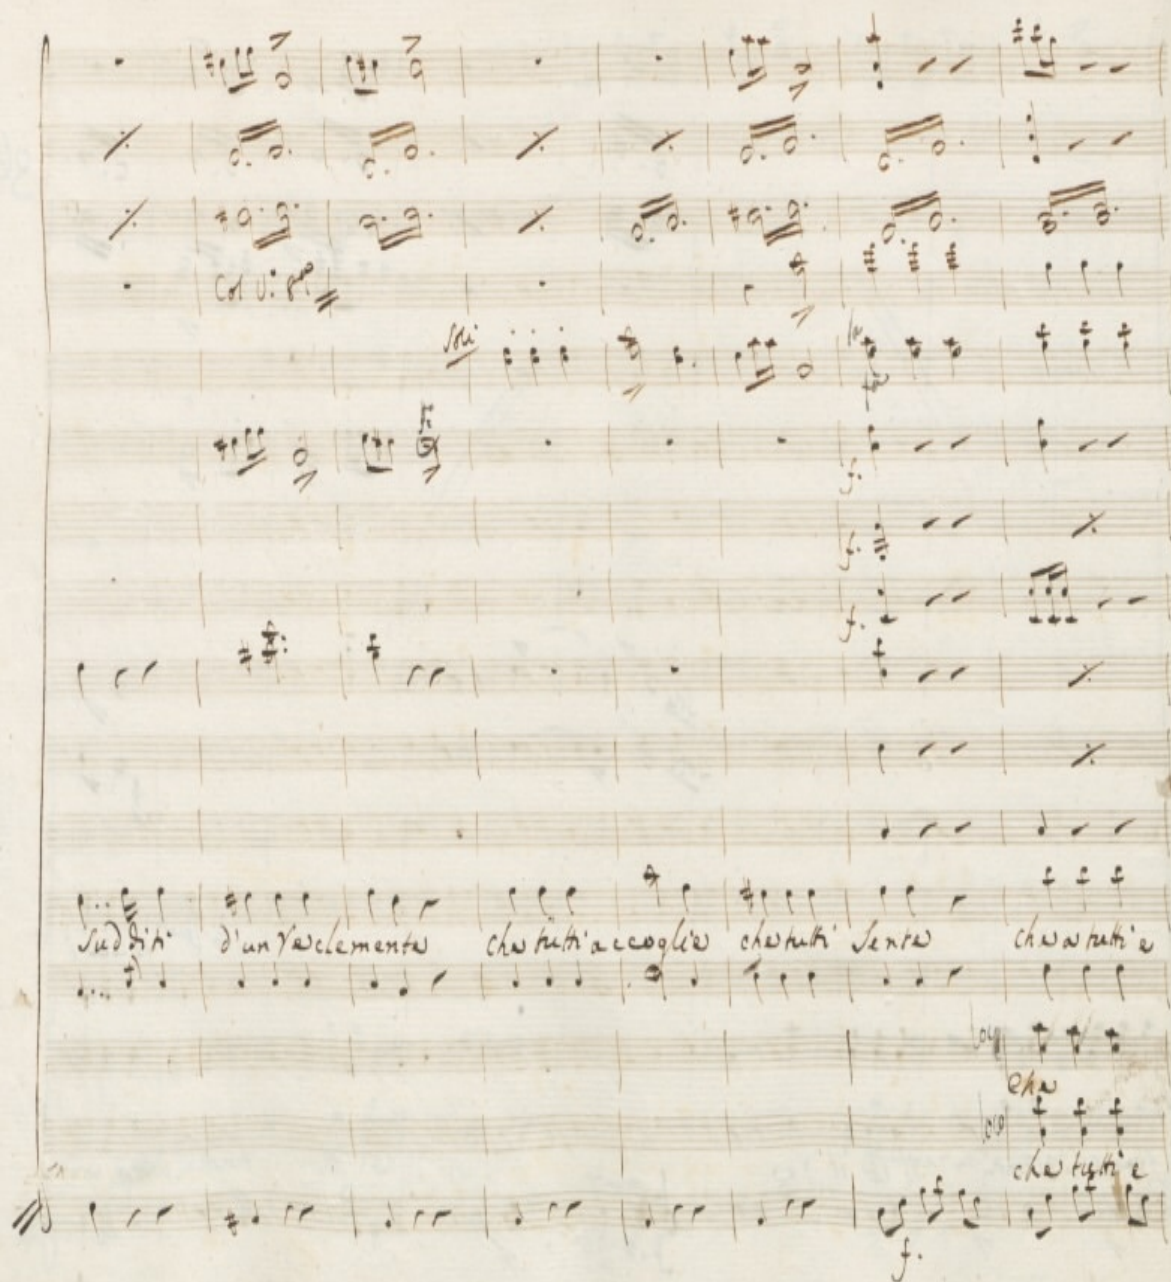 Col V: 8va
Soli
f.
f.
f.
sudditi d'un Re clemente che tutti accoglie che tutti sente che a tutti è
loco
Che
loco
che tutti è
f.